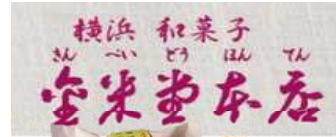 横浜 和菓子
きん べい どう ほん てん
金米堂本店